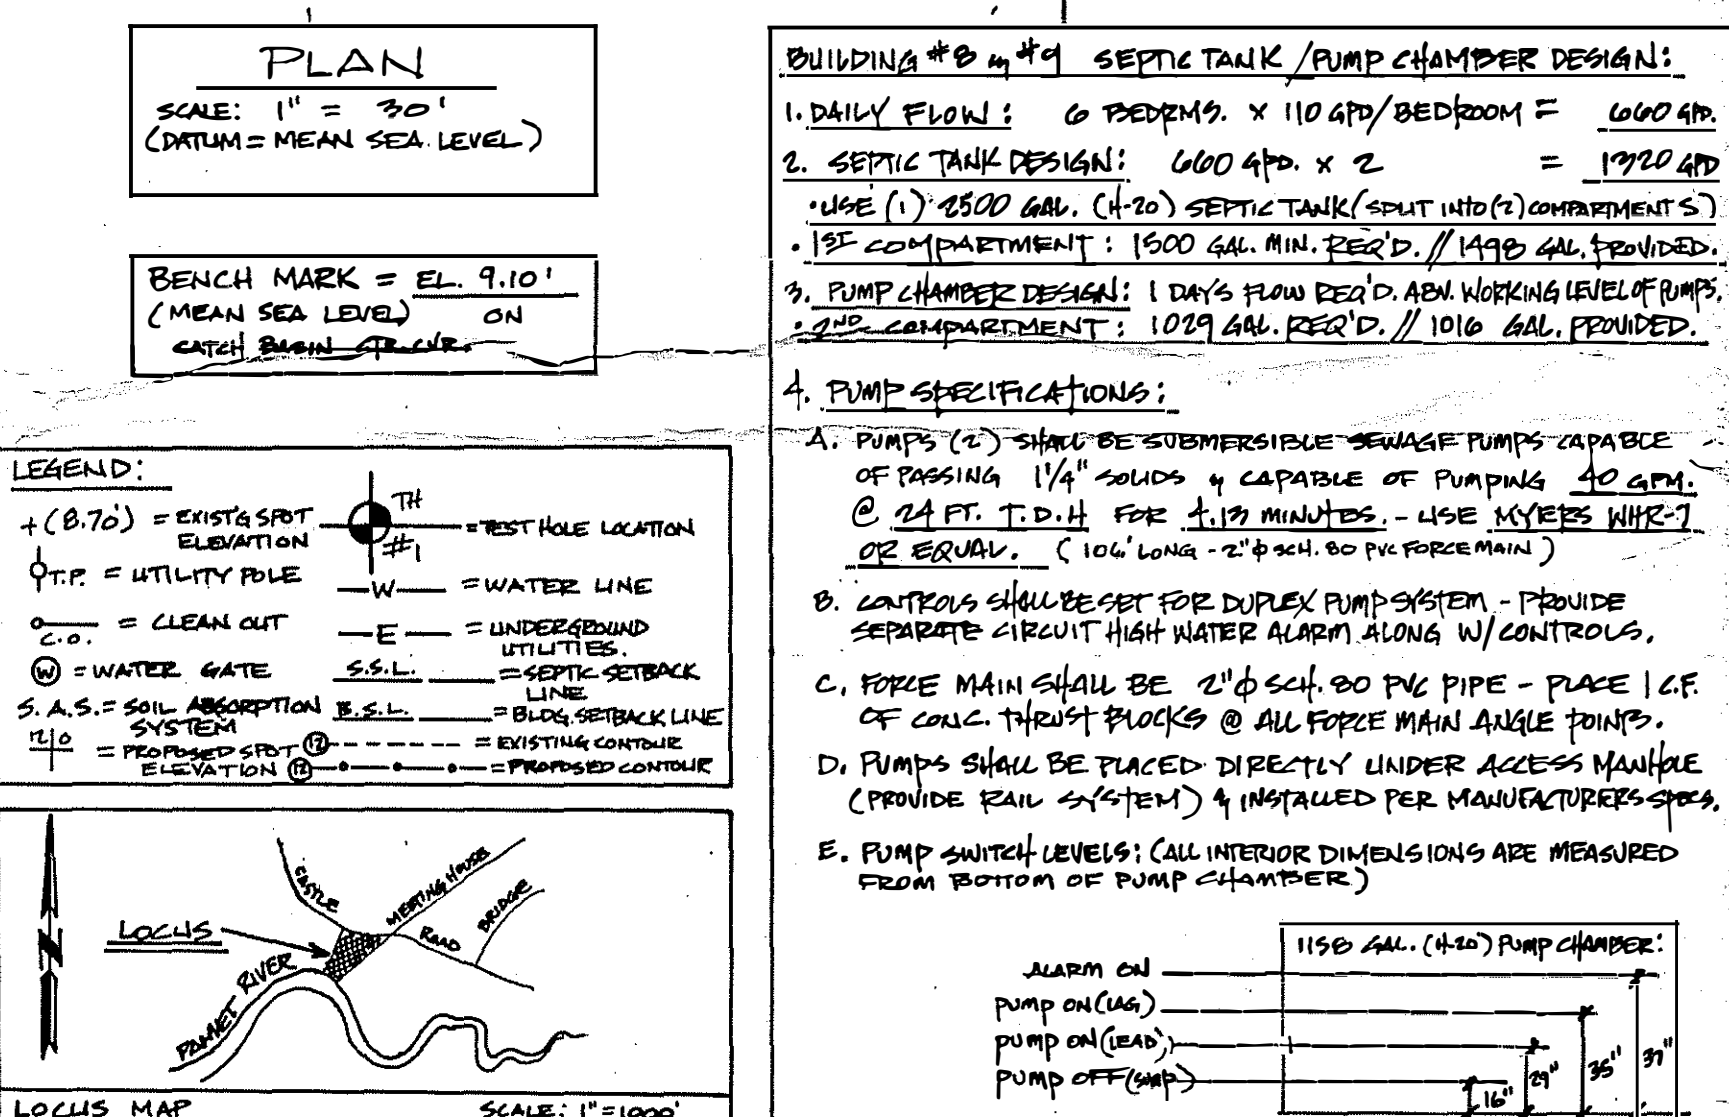 PLAN
SCALE: 1" = 30'
(DATUM = MEAN SEA LEVEL)
BENCH MARK = EL. 9.10'
(MEAN SEA LEVEL) ON
CATCH BASIN CTR. CVR.
LEGEND:
+(8.70') = EXIST'G SPOT ELEVATION
TH #1 = TEST HOLE LOCATION
T.P. = UTILITY POLE
—W— = WATER LINE
C.O. = CLEAN OUT
—E— = UNDERGROUND UTILITIES.
W = WATER GATE
S.S.L. = SEPTIC SETBACK LINE
S.A.S. = SOIL ABSORPTION SYSTEM
B.S.L. = BLDG. SETBACK LINE
12|0 = PROPOSED SPOT ELEVATION
12 = EXISTING CONTOUR
12 = PROPOSED CONTOUR
N
LOCUS
CASTLE
MEETING HOUSE
ROAD
BRIDGE
PAMET RIVER
LOCUS MAP SCALE: 1"=1000'
BUILDING #8 & #9 SEPTIC TANK/PUMP CHAMBER DESIGN:
1. DAILY FLOW: 6 BEDRMS. x 110 GPD/BEDROOM = 660 GPD.
2. SEPTIC TANK DESIGN: 660 GPD. x 2 = 1320 GPD
• USE (1) 2500 GAL. (H-20) SEPTIC TANK (SPLIT INTO (2) COMPARTMENTS)
• 1ST COMPARTMENT: 1500 GAL. MIN. REQ'D. // 1498 GAL. PROVIDED.
3. PUMP CHAMBER DESIGN: 1 DAYS FLOW REQ'D. ABV. WORKING LEVEL OF PUMPS.
• 2ND COMPARTMENT: 1029 GAL. REQ'D. // 1016 GAL. PROVIDED.
4. PUMP SPECIFICATIONS:
A. PUMPS (2) SHALL BE SUBMERSIBLE SEWAGE PUMPS CAPABLE
OF PASSING 1 1/4" SOLIDS & CAPABLE OF PUMPING 40 GPM.
@ 24 FT. T.D.H FOR 4.13 MINUTES. - USE MYERS WHR-7
OR EQUAL. (106' LONG - 2"φ SCH. 80 PVC FORCE MAIN)
B. CONTROLS SHALL BE SET FOR DUPLEX PUMP SYSTEM - PROVIDE
SEPARATE CIRCUIT HIGH WATER ALARM ALONG W/ CONTROLS.
C. FORCE MAIN SHALL BE 2"φ SCH. 80 PVC PIPE - PLACE 1 C.F.
OF CONC. THRUST BLOCKS @ ALL FORCE MAIN ANGLE POINTS.
D. PUMPS SHALL BE PLACED DIRECTLY UNDER ACCESS MANHOLE
(PROVIDE RAIL SYSTEM) & INSTALLED PER MANUFACTURERS SPECS.
E. PUMP SWITCH LEVELS: (ALL INTERIOR DIMENSIONS ARE MEASURED
FROM BOTTOM OF PUMP CHAMBER)
1158 GAL. (H-20) PUMP CHAMBER:
ALARM ON
PUMP ON (LAG)
PUMP ON (LEAD)
PUMP OFF (SUMP)
16"
29"
35"
37"